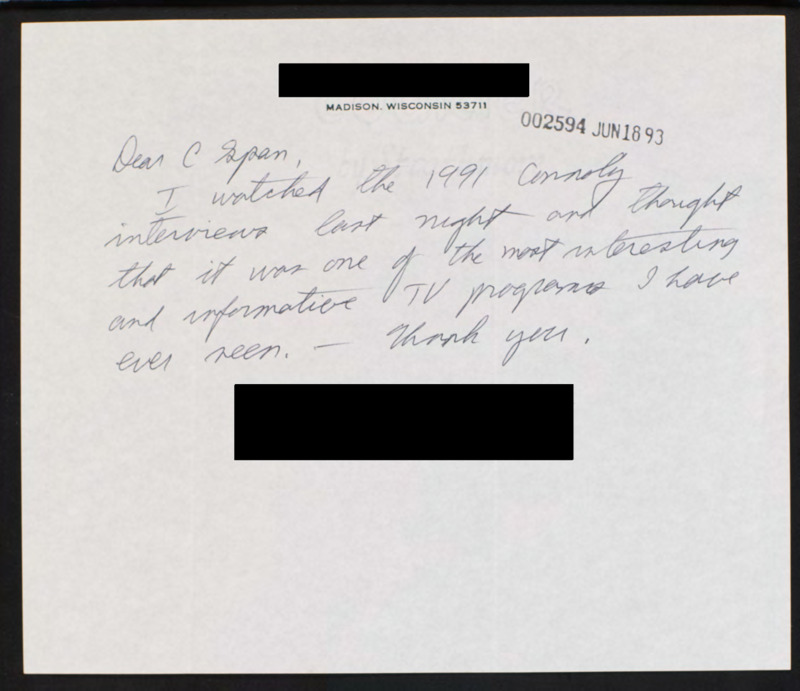 MADISON, WISCONSIN 53711
002594 JUN 18 93
Dear C Span,
I watched the 1991 Connoly
interviews last night and thought
that it was one of the most interesting
and informative TV programs I have
ever seen. — Thank you.